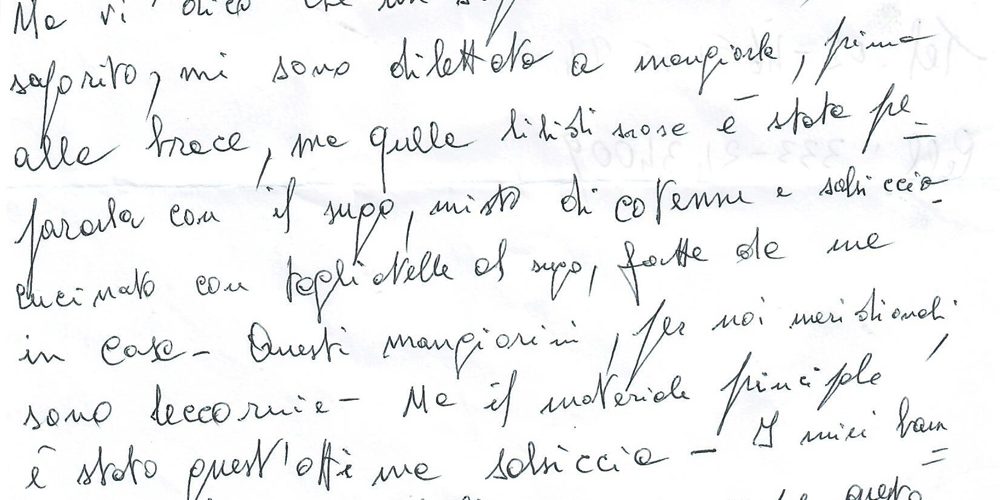 Ma vi dico che non
saporito, mi sono dilettato a mangiarla, prima
alla brace, ma quella
è stata pe=
pararla con il sugo, misto di cotenne e salsiccia
cucinato con tagliatelle al sugo, fatte da me
in casa - Questi mangiorini, per noi meridionali
sono leccornie - Ma il materiale principale,
è stato quest'ottima salsiccia - I miei bam=
questo